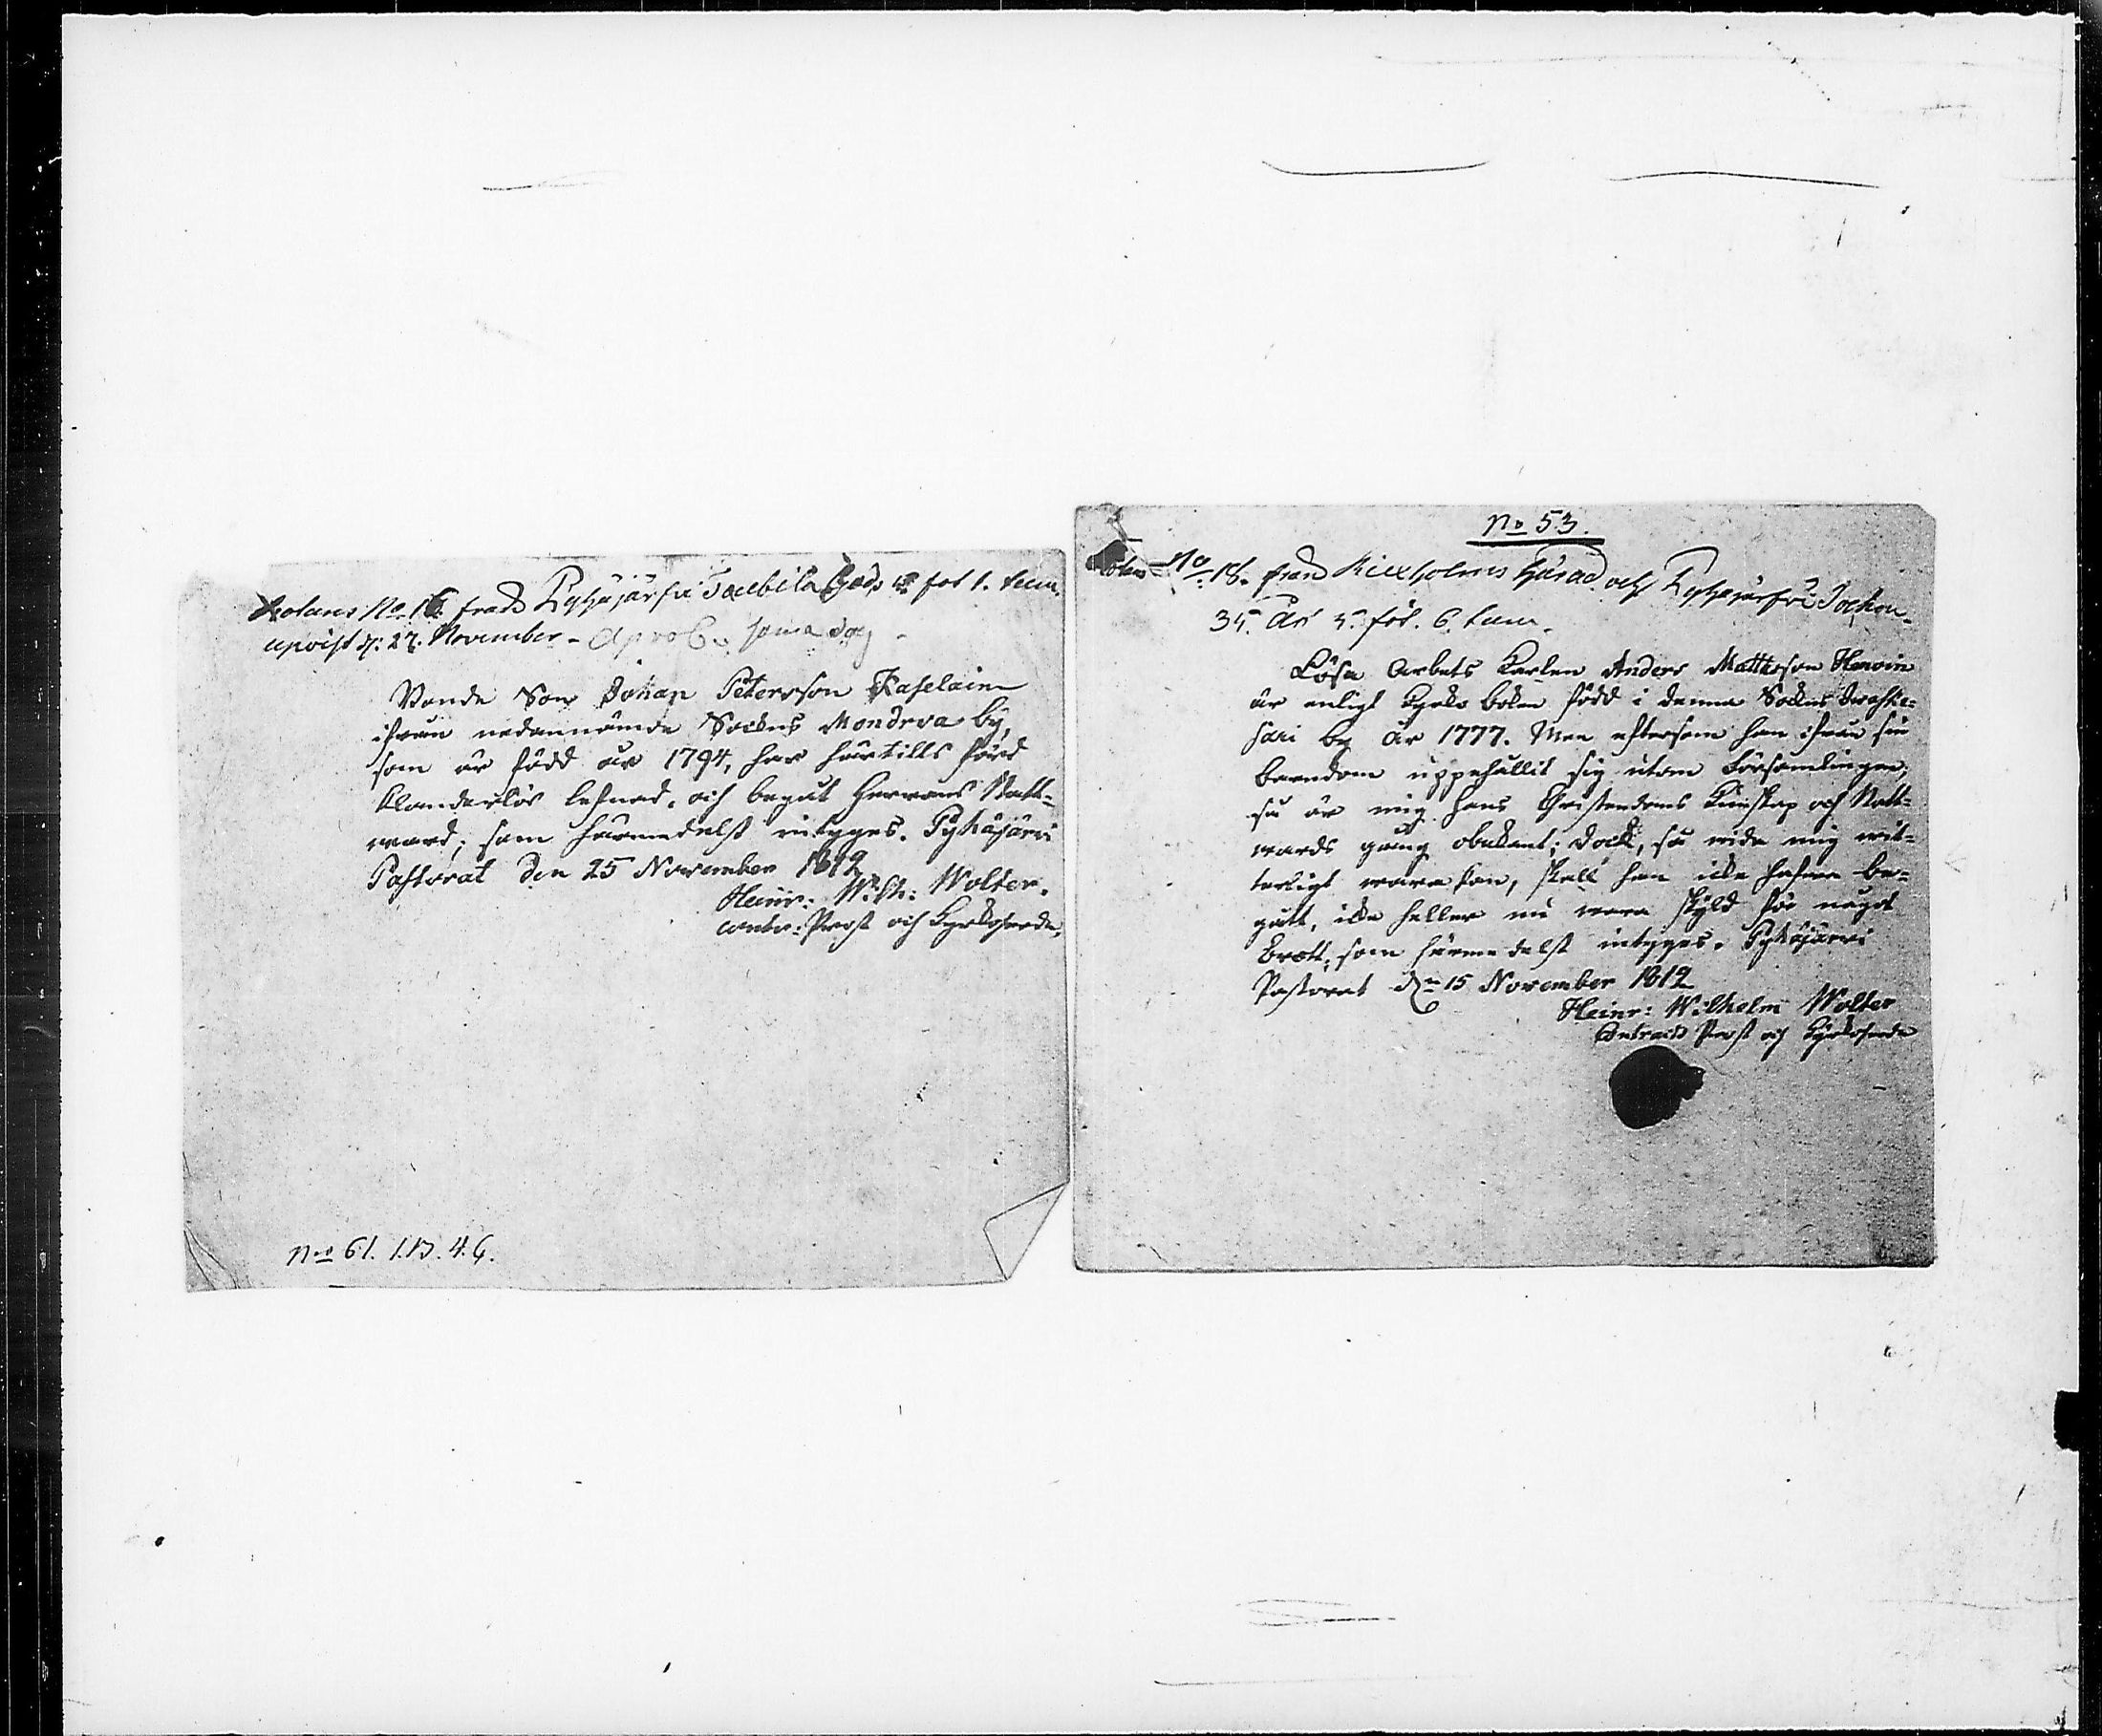 Rotans No. 16. från Pyhäjärfvi Taubila Gods 5 fot 1. tum.
upvist d: 27. November - Aprob. sama dag
Bonde Son Johan Petersson Kaselain
ifrån nedannämde Sockns Mondrva by,
som är född år 1794, har härtills fört
klanderlös lefnad, och begåt Herrans Natt-
ward; som härmedelst intyges. Pyhäjärvi
Pastorat den 25 November 1812
Heinr: Wilh: Wolter.
contr: Prost och Kyrkoherde.
No 61. 1.B. 4.6.
No 53.
No. 18. från Kiexholms Härad och Pyhäjärfvi Sochn.
35. År 5. fot. 6. tum.
Lösa Arbets Karlen Anders Mattsson Henvin
är enligt Kyrko boken född i denna Sockns
sari by År 1777. Men eftersom han ifrån sin
barndom uppehållit sig utom Församlingen,
så är mig hans Christendoms Kunskap och Natt-
wards gång obekant; dock, så vida mig wit-
terligt wara kan, skall han icke hafwa be-
gått, icke heller nu wara skyld för något
brott; som härmedelst intyges. Pyhäjärvi
Pastorat den 15 November 1812
Heinr: Wilhelm Wolter
Contracts Prost och Kyrkoherde